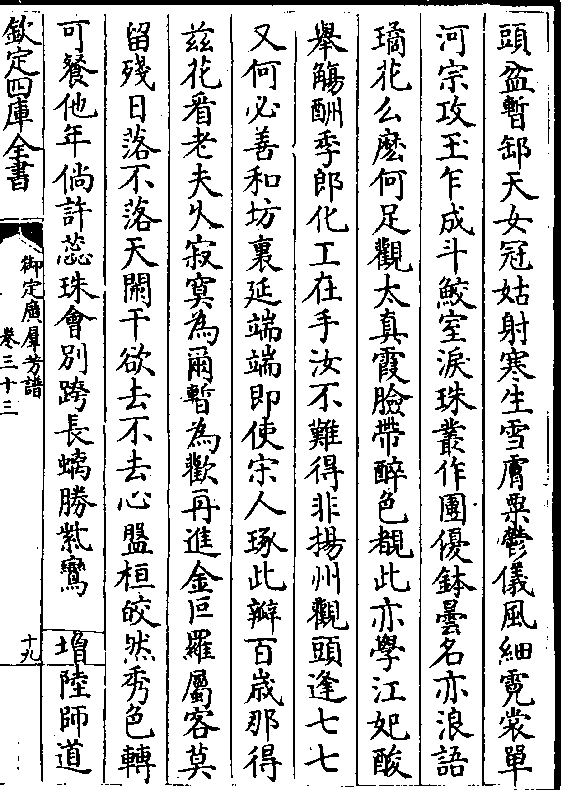 頭盆暫卸天女冠姑射寒生雪膚粟鬱儀風細霓裳單
河宗攻玉乍成斗鮫室淚珠叢作團優鉢曇名亦浪語
璚花么麽何足觀太真霞臉帶醉色覩此亦學江妃酸
舉觴酬季郎化工在手汝不難得非揚州觀頭逢七七
又何必善和坊裏延端端即使宋人琢此瓣百歲那得
兹花看老夫久寂寞為爾暫為歡再進金叵羅屬客莫
留殘日落不落天闌干欲去不去心盤桓皎然秀色轉
可餐他年倘許蕊珠會別跨長螭勝紫鸞 增陸師道
欽定四庫全書
御定廣羣芳譜
卷三十三
十九